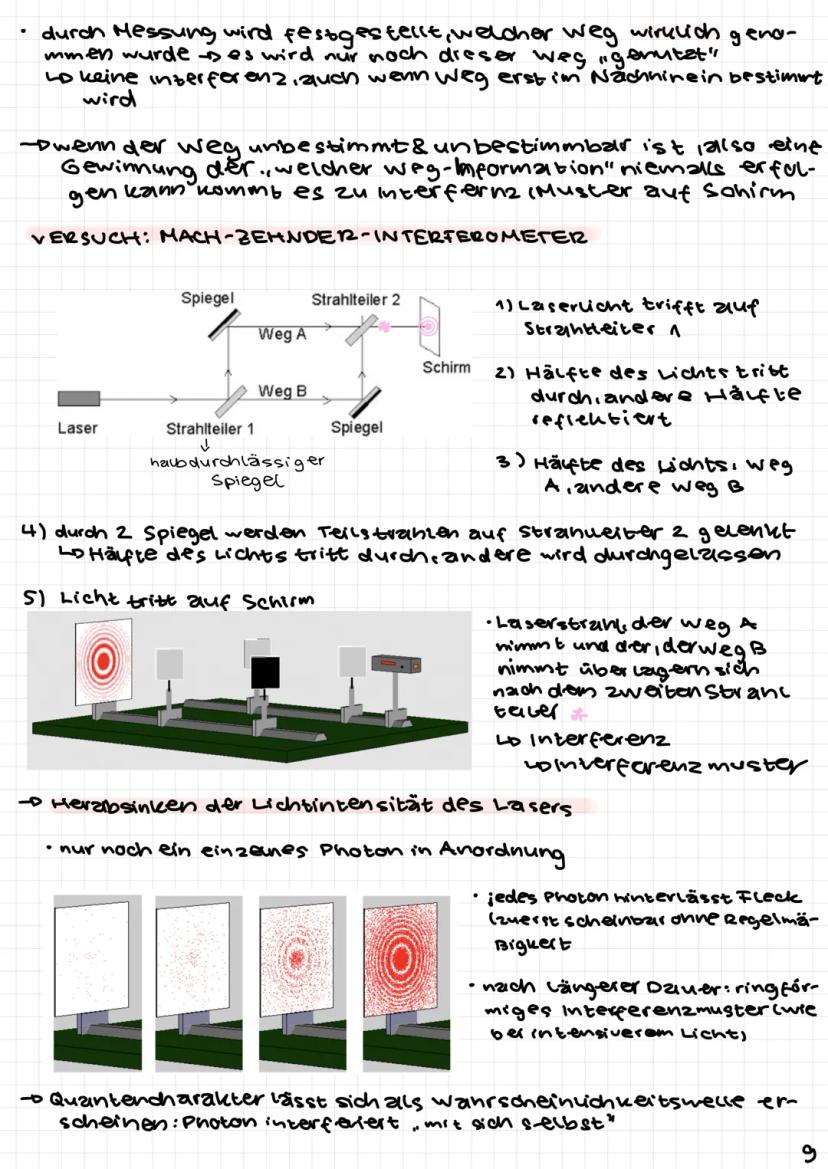 • durch Messung wird festgestellt, welcher Weg wirklich geno-
mmen wurde → es wird nur noch dieser Weg „genutzt"
↳ keine interferenz, auch wenn Weg erst im Nachhinein bestimmt
wird
→ wenn der Weg unbestimmt & unbestimmbar ist, also eine
Gewinnung der „welcher Weg-Information" niemals erfol-
gen kann kommt es zu Interfernz (Muster auf Schirm
VERSUCH: MACH-ZEHNDER-INTERFEROMETER
Spiegel
Strahlteiler 2
Weg A
Schirm
Weg B
Laser
Strahlteiler 1
Spiegel
↓
halbdurchlässiger
Spiegel
1) Laserlicht trifft auf
Strahlteiler 1
2) Hälfte des Lichts tritt
durch, andere Hälfte
reflektiert
3) Hälfte des Lichts: Weg
A, andere Weg B
4) durch 2 Spiegel werden Teilstrahlen auf Strahlteiler 2 gelenkt
↳ Hälfte des Lichts tritt durch, andere wird durchgelassen
5) Licht tritt auf Schirm
• Laserstrahl, der Weg A
nimmt und der, der Weg B
nimmt überlagern sich
nach dem zweiten Strahl
teiler
↳ Interferenz
↳ Interferenzmuster
→ Herabsinken der Lichtintensität des Lasers
• nur noch ein einzelnes Photon in Anordnung
• jedes Photon hinterlässt Fleck
(zuerst scheinbar ohne Regelmä-
ßigkeit
• nach längerer Dauer: ringför-
miges Interferenzmuster (wie
bei intensiverem Licht)
→ Quantencharakter lässt sich als Wahrscheinlichkeitswelle er-
scheinen: Photon interferiert „mit sich selbst"
9